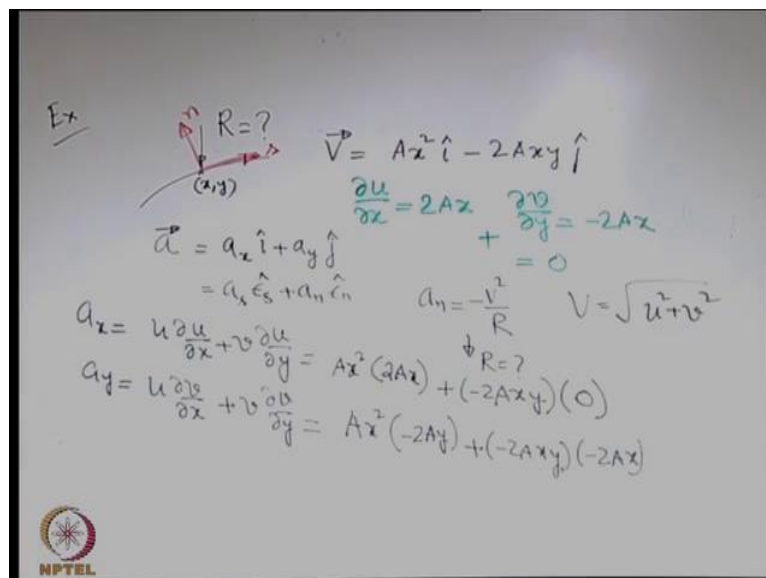 Ex
n R = ? s
(x,y)
V⃗ = Ax² î − 2Axy ĵ
∂u/∂x = 2Ax + ∂v/∂y = −2Ax
= 0
a⃗ = aₓ î + a_y ĵ
= a_s ε̂_s + a_n ε̂_n
a_n = −V²/R V = √(u²+v²)
↓ R = ?
aₓ = u ∂u/∂x + v ∂u/∂y = Ax² (2Ax) + (−2Axy)(0)
a_y = u ∂v/∂x + v ∂v/∂y = Ax² (−2Ay) + (−2Axy)(−2Ax)
NPTEL